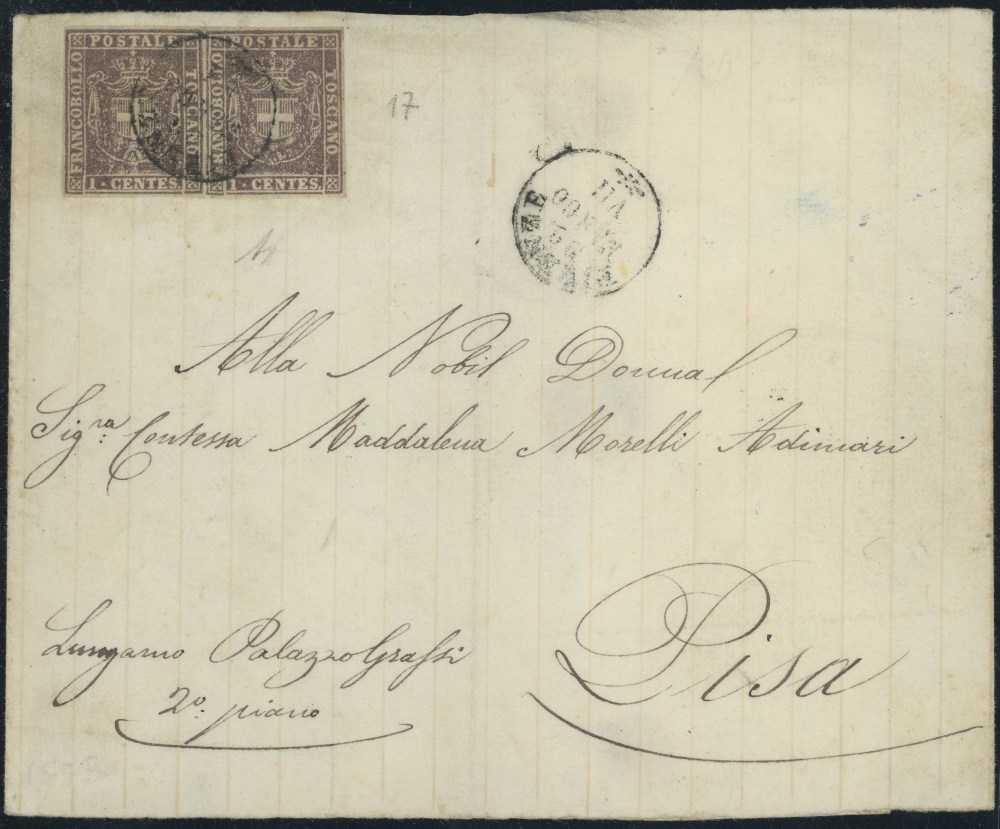 FRANCOBOLLO POSTALE TOSCANO
1 · CENTES.
FRANCOBOLLO POSTALE TOSCANO
1 · CENTES.
17
Alla Nobil Donna
Sig.ra Contessa Maddalena Morelli Adimari
Pisa
Lungarno Palazzo Grassi
2º. piano